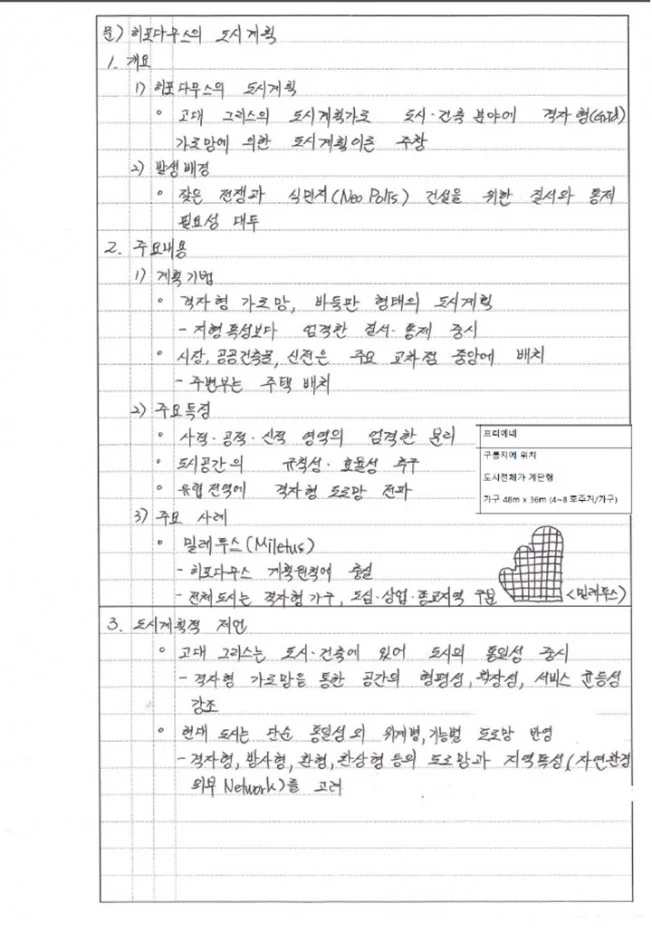 문) 히포다무스의 도시계획
1. 개요
1) 히포다무스의 도시계획
◦ 고대 그리스의 도시계획가로 도시·건축 분야에 격자형(Grid)
가로망에 의한 도시계획이론 주창
2) 발생배경
◦ 잦은 전쟁과 식민지(Neo Polis) 건설을 위한 질서와 통제
필요성 대두
2. 주요내용
1) 계획기법
◦ 격자형 가로망, 바둑판 형태의 도시계획
- 지형특성보다 엄격한 질서·통제 중시
◦ 시장, 공공건축물, 신전은 주요 교차점 중앙에 배치
- 주변부는 주택 배치
2) 주요특징
◦ 사적·공적·신적 영역의 엄격한 분리
◦ 도시공간의 규칙성·효율성 추구
◦ 유럽 전역에 격자형 도로망 전파
프리에네
구릉지에 위치
도시전체가 계단형
가구 48m x 36m (4~8 호주거/가구)
3) 주요 사례
◦ 밀레투스(Miletus)
- 히포다무스 계획원칙에 충실
- 전체도시는 격자형 가구, 도심·상업·종교지역 구분
<밀레투스>
3. 도시계획적 제언
◦ 고대 그리스는 도시·건축에 있어 도시의 통일성 중시
- 격자형 가로망을 통한 공간의 형평성, 확장성, 서비스 균등성
강조
◦ 현대 도시는 단순 통일성 외 위계별, 기능별 도로망 반영
- 격자형, 방사형, 환형, 환상형 등의 도로망과 지역특성(자연환경
외부 Network)를 고려